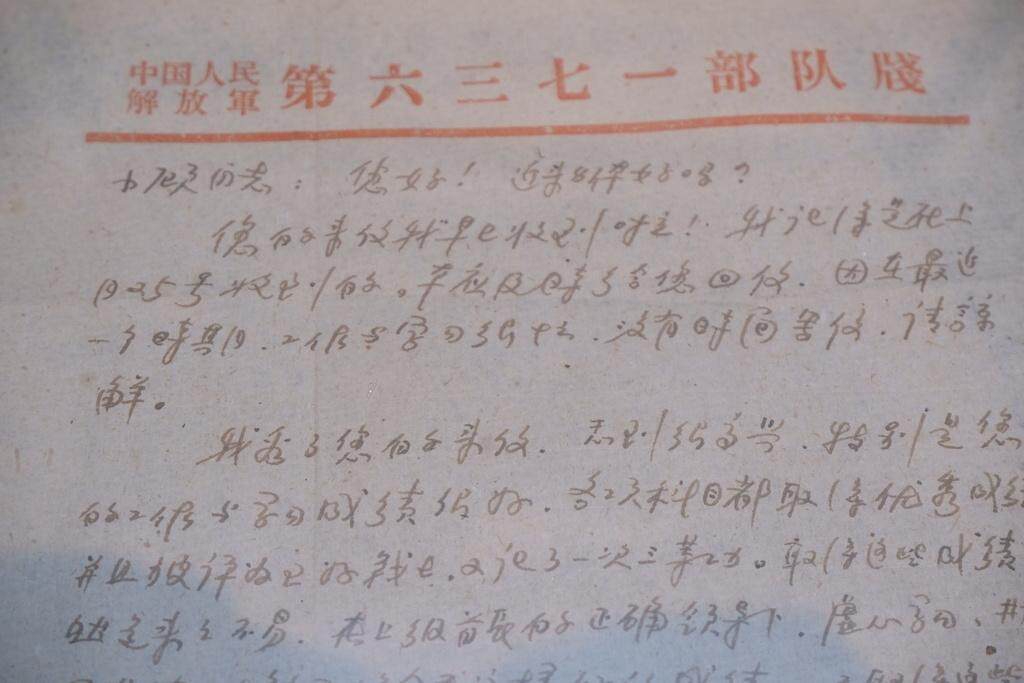 中国人民解放軍 第六三七一部队牋
小顾同志：您好！近来一切都好吗？
您的来信我早已收到
号收到的。本应及時给您回信．因在最近
一个時期内．工作与学习很忙．没有時间写信．请諒
解。
我看了您的来信．感到很高兴．特别是您
的工作与学习成績很好．各项科目都取得优秀成绩
并且被评为五好战士．又记了一次三等功。取得这些成績
是来之不易．在上级首长的正确领导下．虚心学习、